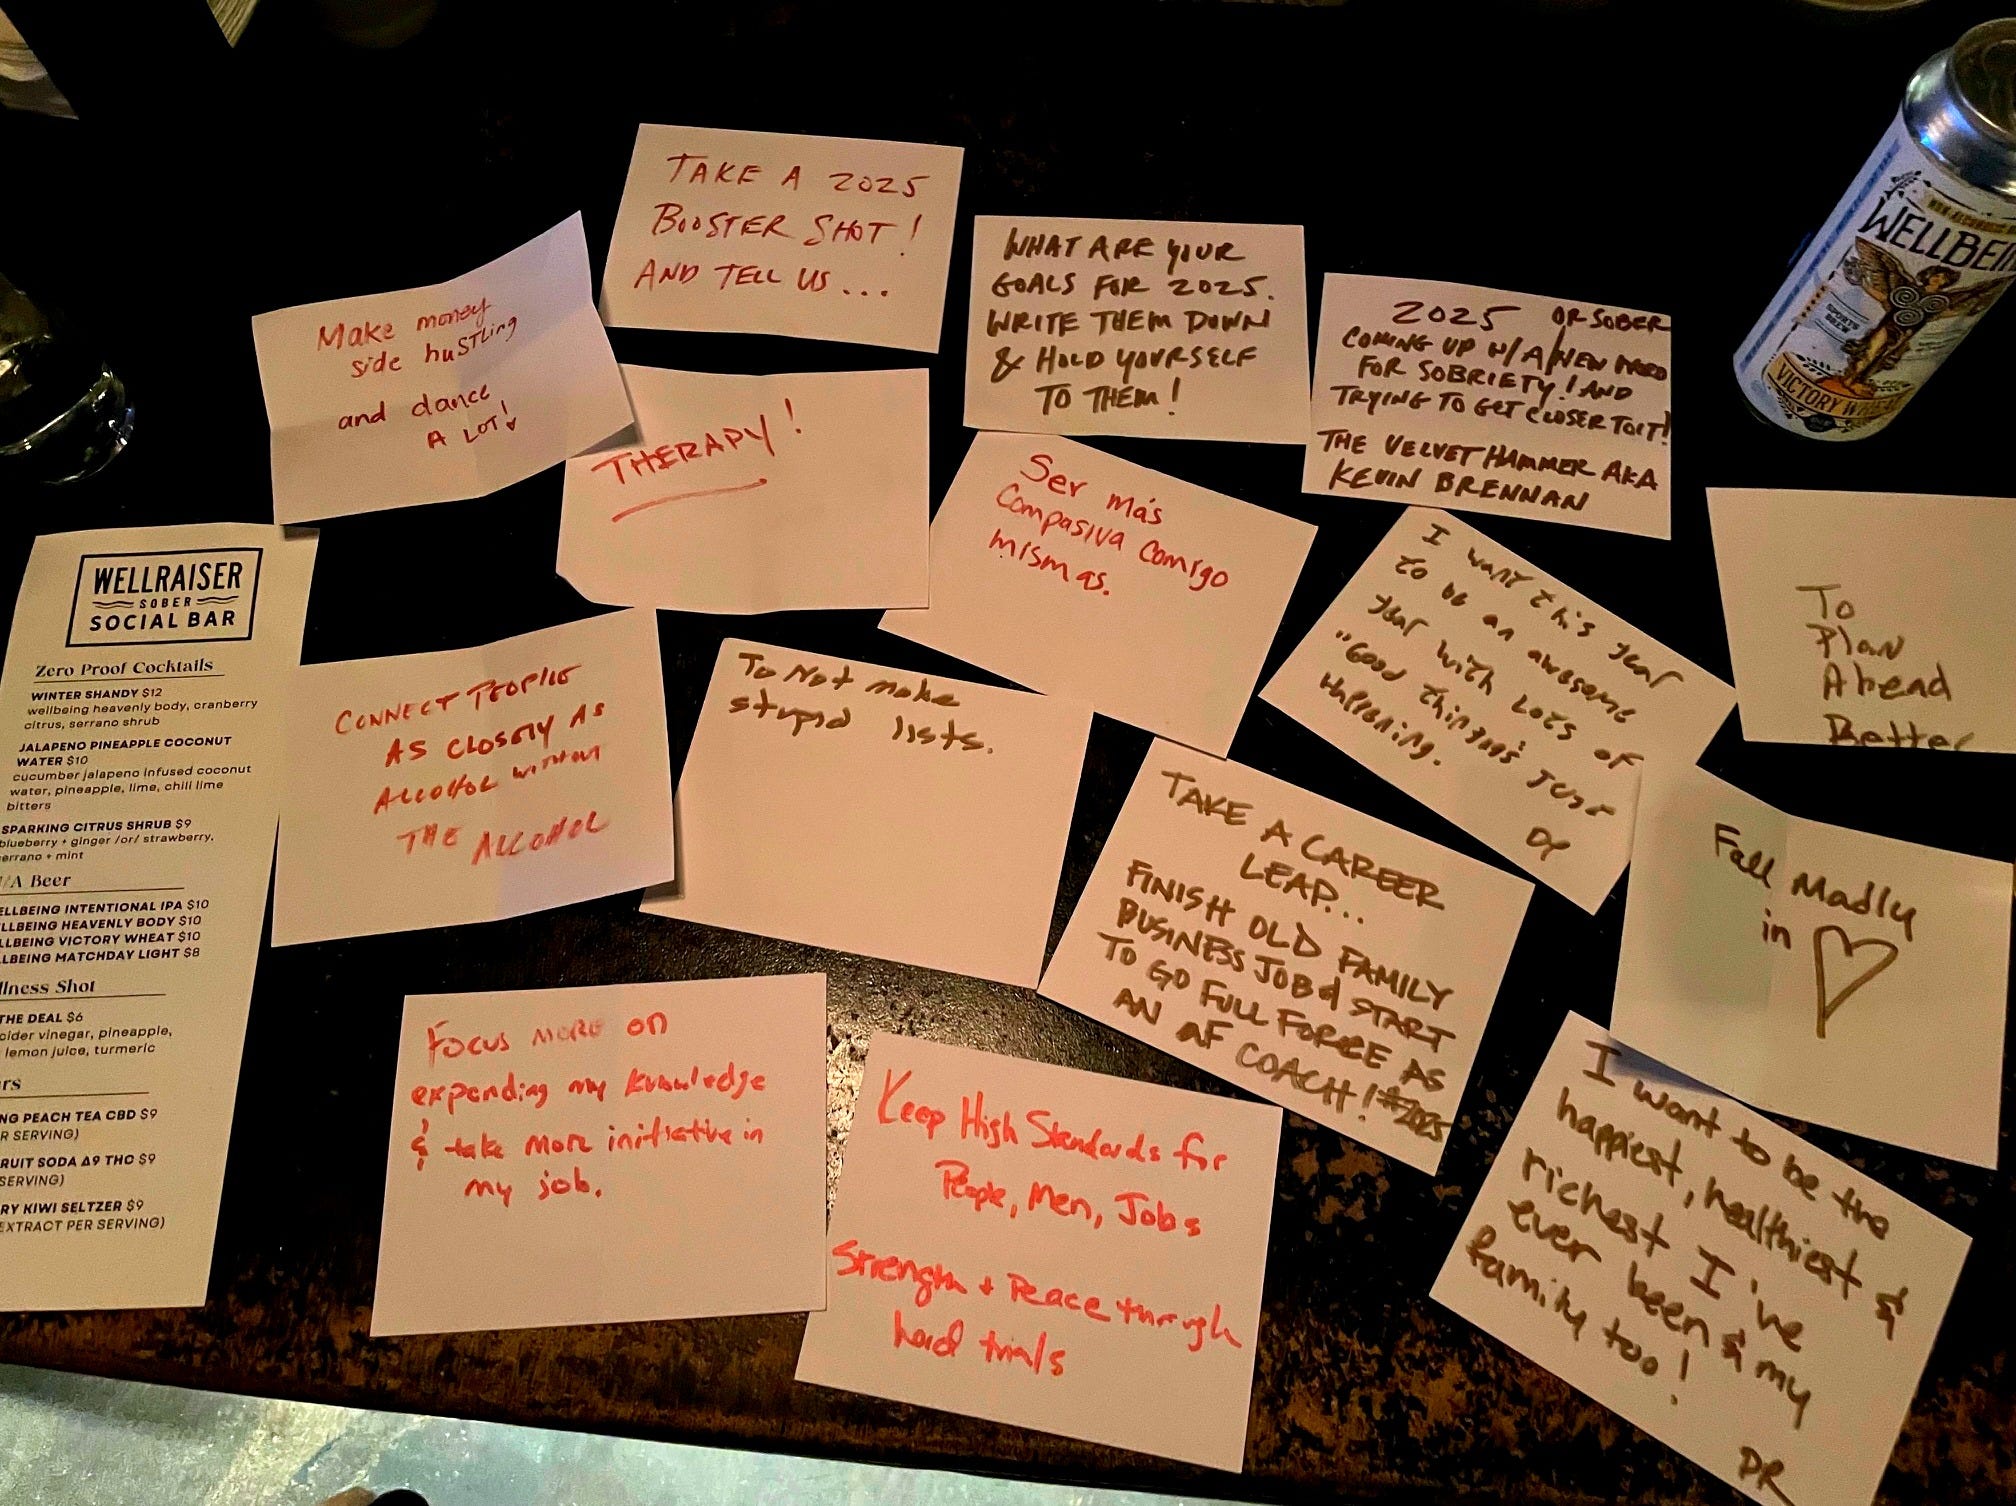 TAKE A 2025
BOOSTER SHOT!
AND TELL US...
WHAT ARE YOUR
GOALS FOR 2025.
WRITE THEM DOWN
& HOLD YOURSELF
TO THEM!
2025 OR SOBER
COMING UP W/A NEW WORD
FOR SOBRIETY! AND
TRYING TO GET CLOSER TO IT!
THE VELVET HAMMER AKA
KEVIN BRENNAN
Make money
side huSTLing
and dance
A LOT!
THERAPY!
Ser más
Compasiva Comigo
mismas.
I want this year
to be an awesome
year with LOTS of
"Good things" Just
Happening.
To
Plan
Ahead
Better
CONNECT PEOPLE
AS CLOSELY AS
ALCOHOL WITHOUT
THE ALCOHOL
To Not make
stupid lists.
TAKE A CAREER
LEAP...
FINISH OLD FAMILY
BUSINESS JOB & START
TO GO FULL FORCE AS
AN AF COACH! #2025
Fall Madly
in
Focus MORE on
expanding my knowledge
& take more initiative in
my job.
Keep High Standards for
People, Men, Jobs
Strength + Peace through
hard trials
I want to be the
happiest, healthiest &
richest I've
ever been & my
family too!
DR
WELLRAISER
SOBER
SOCIAL BAR
Zero Proof Cocktails
WINTER SHANDY $12
wellbeing heavenly body, cranberry
citrus, serrano shrub
JALAPENO PINEAPPLE COCONUT
WATER $10
cucumber jalapeno infused coconut
water, pineapple, lime, chili lime
bitters
SPARKING CITRUS SHRUB $9
blueberry + ginger /or/ strawberry,
errano + mint
/A Beer
ELLBEING INTENTIONAL IPA $10
LLBEING HEAVENLY BODY $10
LLBEING VICTORY WHEAT $10
LBEING MATCHDAY LIGHT $8
llness Shot
THE DEAL $6
cider vinegar, pineapple,
lemon juice, turmeric
rs
NG PEACH TEA CBD $9
R SERVING)
RUIT SODA Δ9 THC $9
SERVING)
RY KIWI SELTZER $9
EXTRACT PER SERVING)
WELLBEIN
SPORTS
BREW
VICTORY WHEA